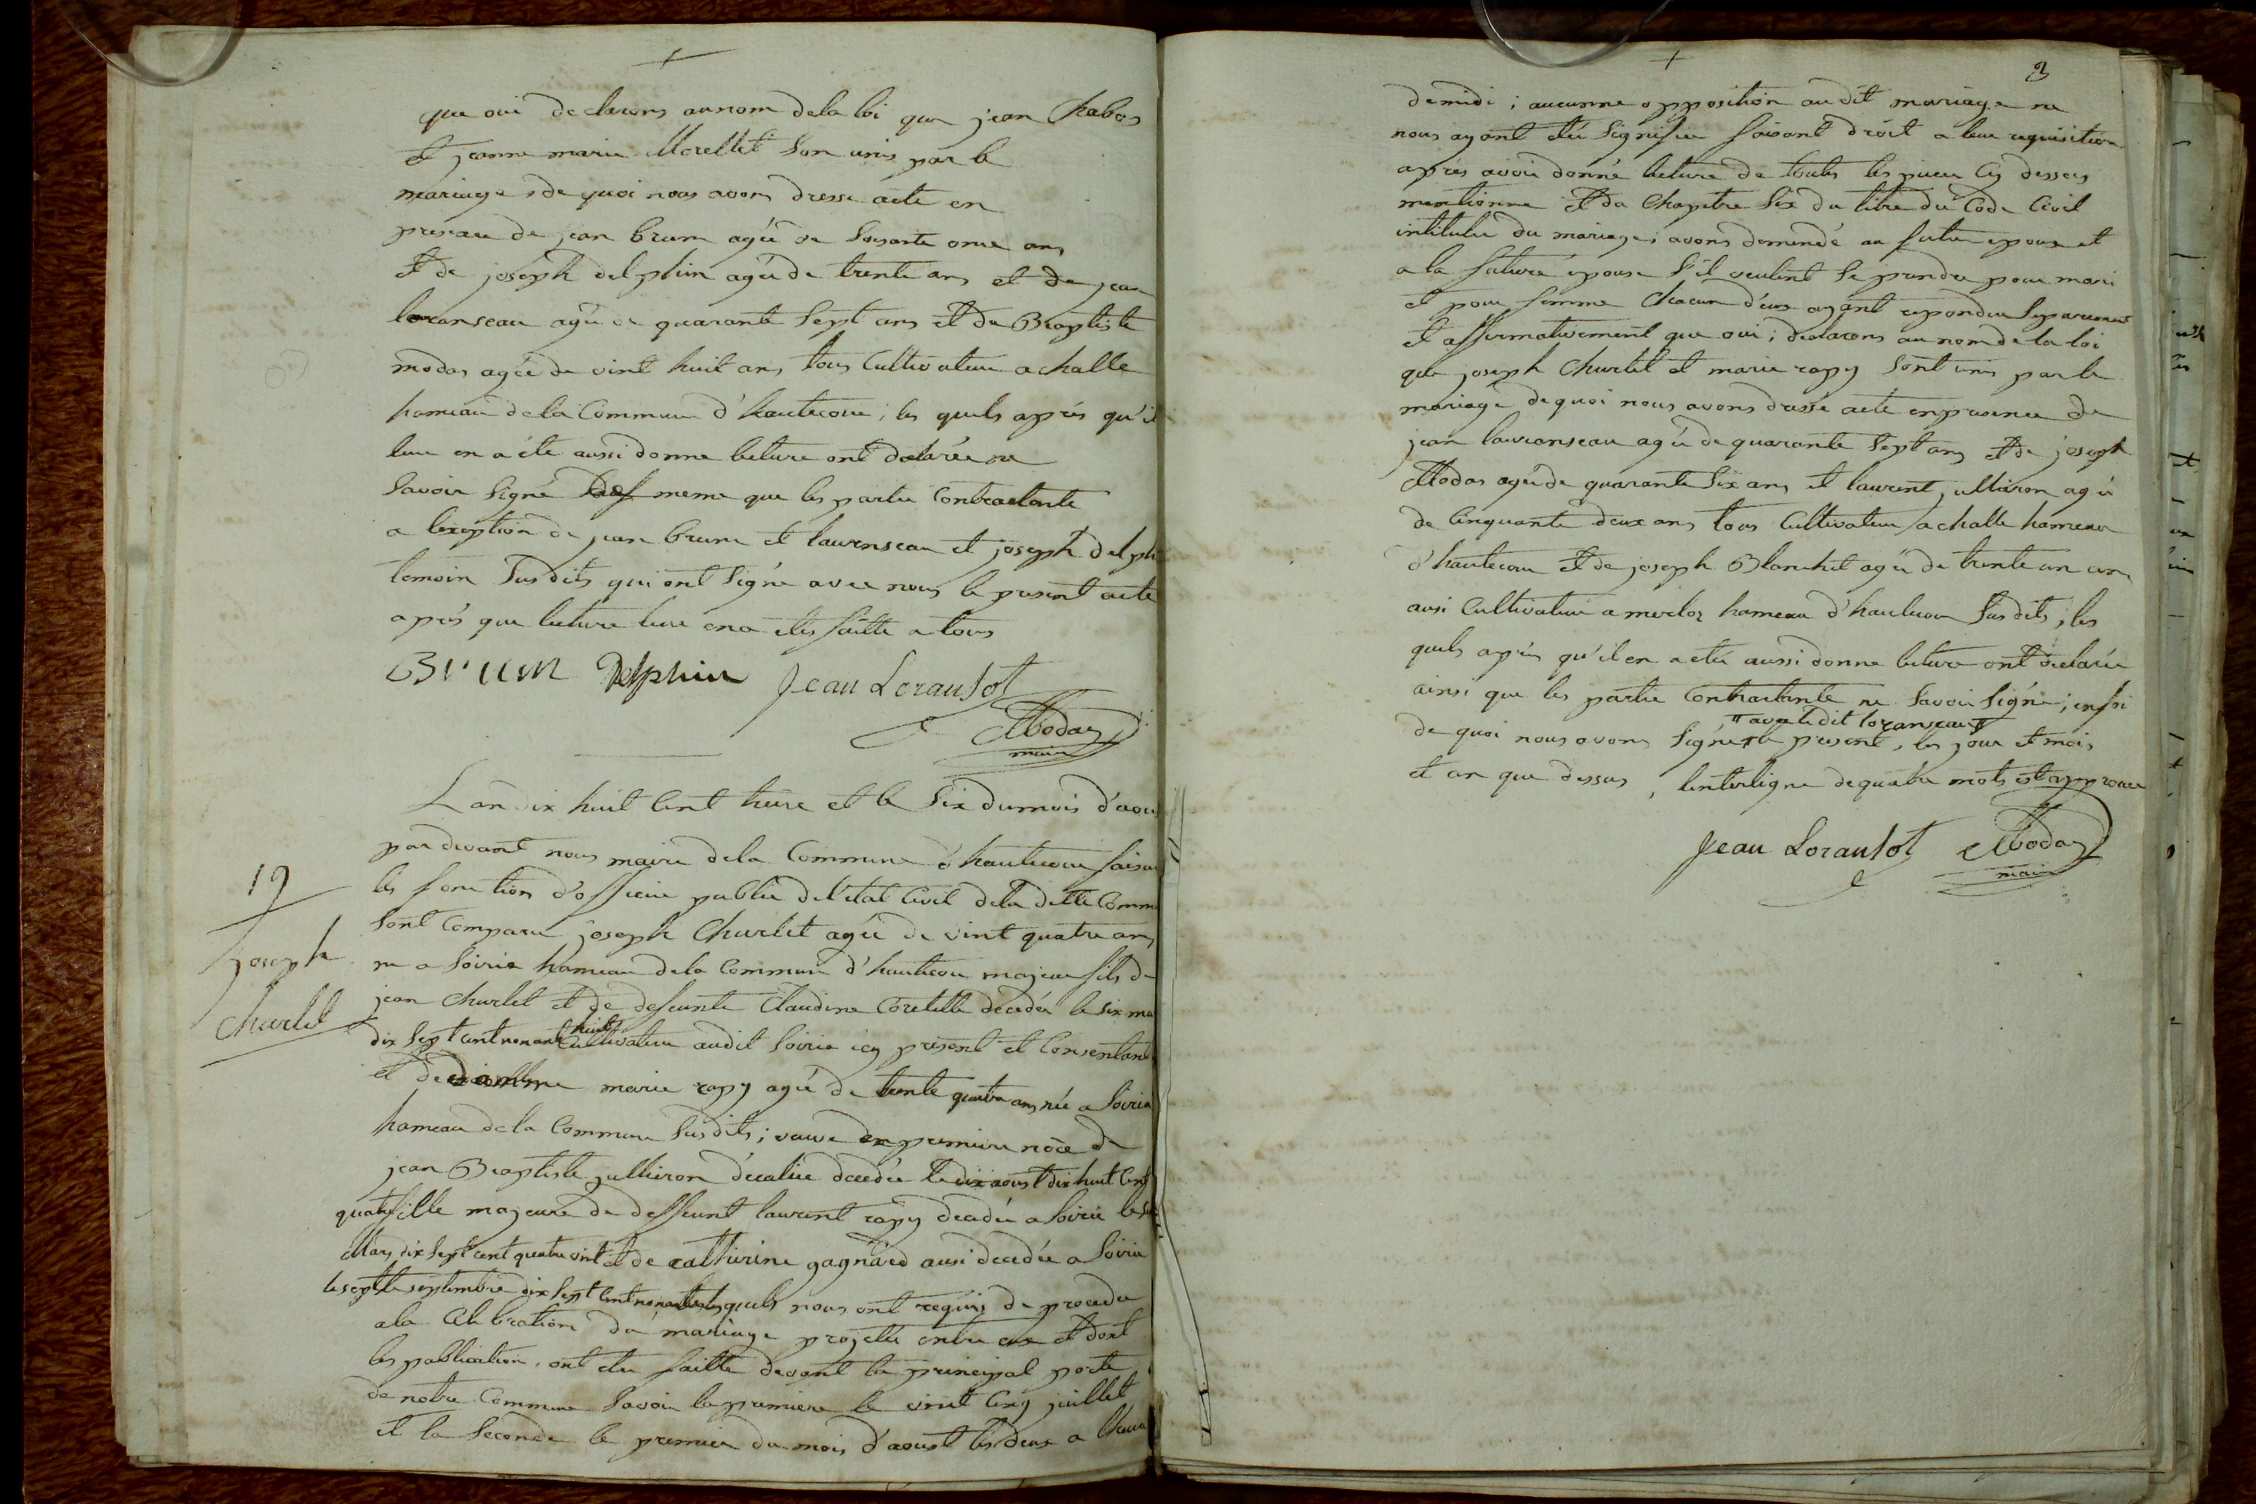 que oui declarons au nom dela loi que jean Chabos
et jeanne marie Morellet Son unis par le
mariage de quoi nous avons dresse acte en
presance de jean brum agée de Soisante onse ans
Et de joseph delphin agée de trente ans et de jean
loranseau agée de quarante Sept ans Et de Baptiste
modas agée de vint huit ans tous Cultivateur a challe
hameau dela Commune d'hautecour ; les quels après qu'il
leur en a été aussi donne lecture ont declarée ne
Savoir Signé de meme que les partie Contractante
a lexeption de jean brum et laurenseau et joseph delphin
temoin Susdits qui ont Signé avec nous le present acte
après que lecture leur en a etes faitte a tous
Brum Delphin Jean Loransot
Modas
maire
L'an dix huit Cent treize et le Six dumois d'aou
par devant nous maire dela Commune d'hautecour faisan
les fonction d'officier public de l'etat Civil dela ditte Comm
Sont Comparu joseph Churlet agée de vint quatre ans
19
joseph
Churlet
ne a Soiria hameau dela Commune d'hautecour majeur fils de
jean Churlet et de defeunte Claudine Coretille decedée le six ma
huit
dix Sept cent nonante Cultivateur audit Soiria icy present et Consentant
et de marie rapy agée de trente quatre ans née a Soiria
hameau dela Commune Susdits ; veuve en premiere noce de
jean Baptiste jullieron decedée le dix aoust dix huit Cent
quatre fille majeure de deffeunt laurent rapy decedée a Soiria le
Mars dix Sept cent quatre vint et de catherine gagnard ausi decedée a Soiria
le sept septembre dix Sept Cent nonante les quels nous ont requis de proceder
a la Celebration du mariage projetée entre eux et dont
les publication ont etee faitte devant la principal porte
de notre Commune Savoir la premiere le vint Cinq juillet
et la Seconde le premier du mois d'aoust les deux a l'heure
3
demidi ; aucunne opposition audit mariage ne
nous ayant etée Signifiee faisant droit a leur requisition
après avoir donné lecture de toutes les piece Cy dessus
mentionne Et du Chapitre Six du titre du Code Civil
intitulée du mariage ; avons demandé au futur epoux et
a la future epouse S'il veulent Se prendre pour mari
et pour femme Chacun d'eux ayant repondu Separement
Et affirmativement que oui ; declarons au nom de la loi
que joseph Churlet et marie rapy Sont unis par le
mariage de quoi nous avons dresse acte en presence de
jean lauranseau agée de quarante Sept ans Et de joseph
Modas agée de quarante Six ans et laurent julliron agée
de Cinquante deux ans tous Cultivateur a challe hameau
d'hautecour Et de joseph Blanchet agée de trente un an
ausi Cultivateur a merloz hameau d'hautecour Susdits ; les
quels après qu'il en a etée aussi donne lecture ont declarée
ainsi que les partie Contractante ne Savoir Signée ; enfoi
avec ledit loranseau
de quoi nous avons Signé le present, les jour Et mois
et an que dessus, linterligne de quatre mots est approuvee
Jean Loransot Modas
maire